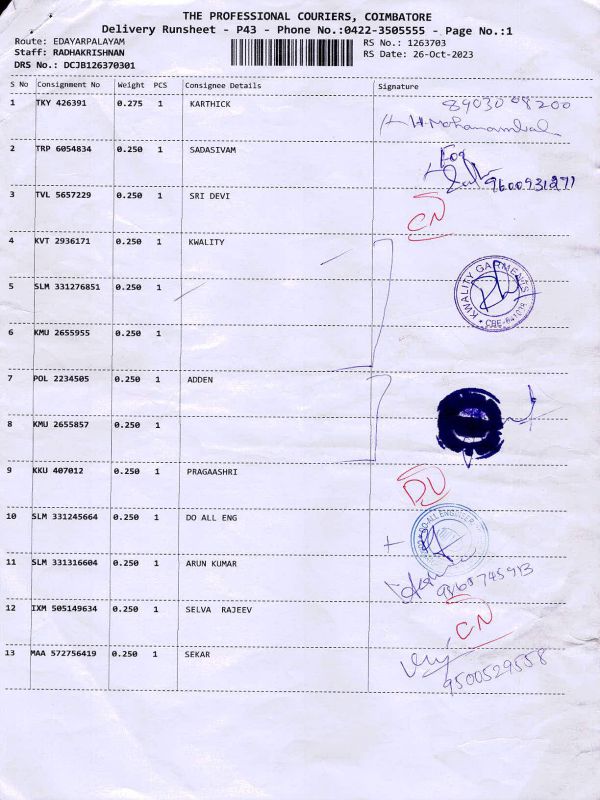 THE PROFESSIONAL COURIERS, COIMBATORE
Delivery Runsheet - P43 - Phone No.:0422-3505555 - Page No.:1
Route: EDAYARPALAYAM
RS No.: 1263703
Staff: RADHAKRISHNAN
RS Date: 26-Oct-2023
DRS No.: DCJB126370301
S No Consignment No Weight PCS Consignee Details Signature
1 TKY 426391 0.275 1 KARTHICK
H.Mohanambal
2 TRP 6054834 0.250 1 SADASIVAM
For
9600931271
3 TVL 5657229 0.250 1 SRI DEVI
CN
4 KVT 2936171 0.250 1 KWALITY
KWALITY GARMENTS
5 SLM 331276851 0.250 1
6 KMU 2655955 0.250 1
7 POL 2234505 0.250 1 ADDEN
8 KMU 2655857 0.250 1
9 KKU 407012 0.250 1 PRAGAASHRI
DL
10 SLM 331245664 0.250 1 DO ALL ENG
DO ALL ENGINEER
11 SLM 331316604 0.250 1 ARUN KUMAR
12 IXM 505149634 0.250 1 SELVA RAJEEV
CN
13 MAA 572756419 0.250 1 SEKAR
9500529558